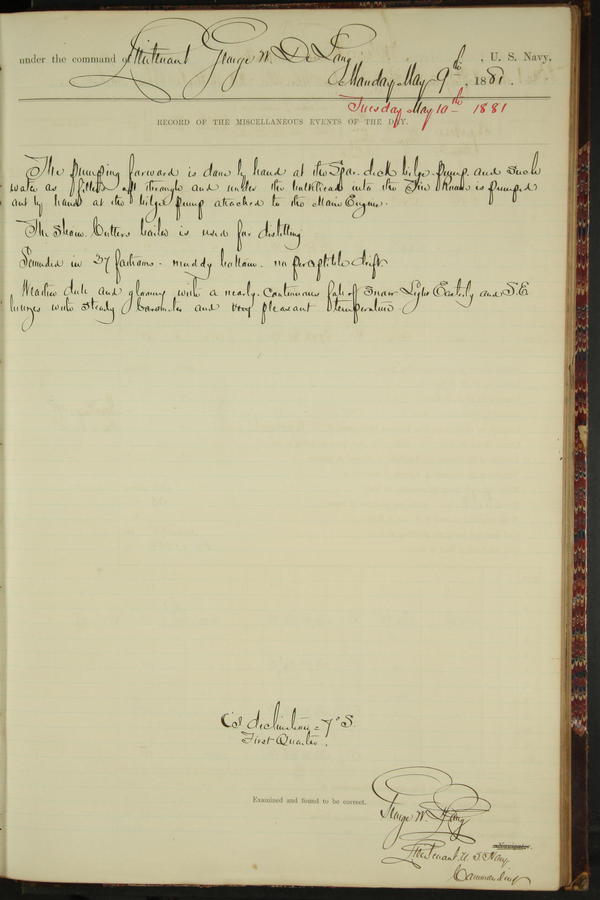 under the command of Lieutenant George W. De Long, U. S. Navy,
Monday May 9th, 1881.
Tuesday May 10th 1881
RECORD OF THE MISCELLANEOUS EVENTS OF THE DAY.
The pumping forward is done by hand at the Spar-deck bilge-pump and such
water as filters aft through and under the bulkhead into the Fire Room is pumped
out by hand at the bilge pump attached to the Main Engine.
The Steam Cutters boiler is used for distilling
Sounded in 37 fathoms - muddy bottom. no perceptible drift
Weather dull and gloomy with a nearly continuous fall of Snow - Light Easterly and S.E
breezes with steady barometer and very pleasant temperature
declination = 7° S.
First Quarter.
Examined and found to be correct.
George W. De Long
Navigator.
Lieutenant U. S. Navy
Commanding